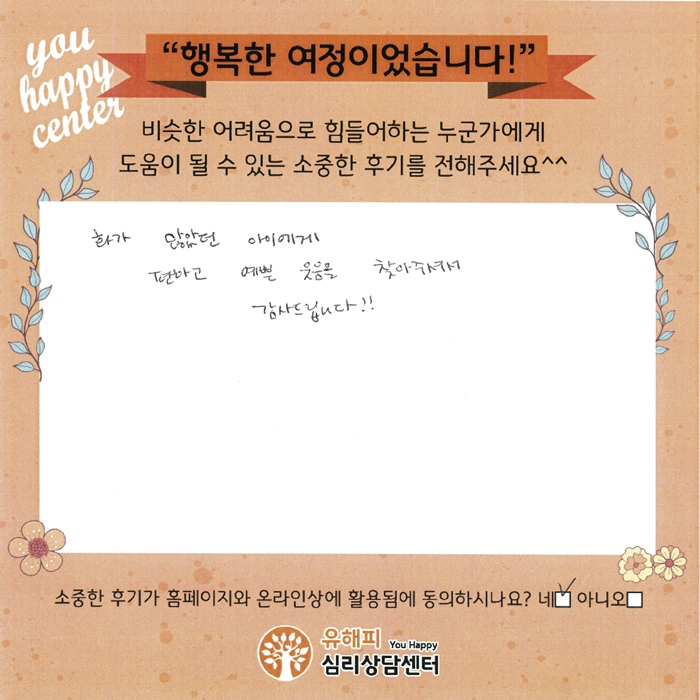 you
happy
center
“행복한 여정이었습니다!”
비슷한 어려움으로 힘들어하는 누군가에게
도움이 될 수 있는 소중한 후기를 전해주세요^^
화가 많았던 아이에게
편하고 예쁜 웃음을 찾아주셔서
감사드립니다!!
소중한 후기가 홈페이지와 온라인상에 활용됨에 동의하시나요? 네 아니오
유해피 You Happy
심리상담센터